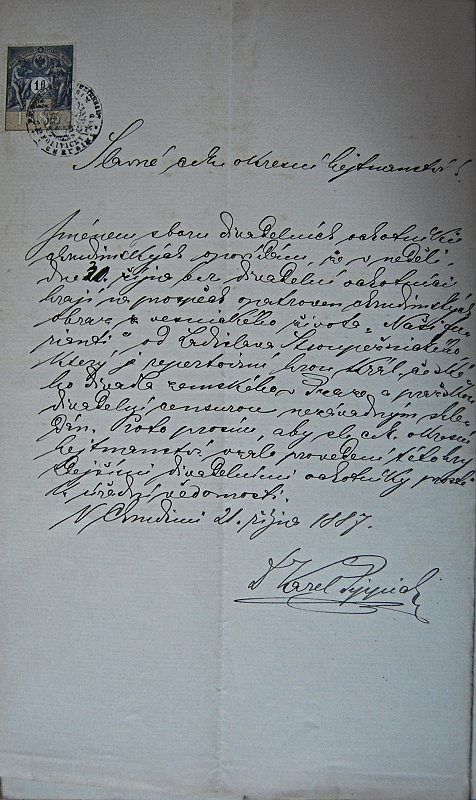 10
Slavné c. k. okresní hejtmanství!
Jménem sboru divadelních ochotníků
chrudimských oznamuji, že v neděli
dne 30. října divadelní ochotníci
hrají na prospěch opatroven chrudimských
obraz z vesnického života „Naši fu-
rianti“ od Ladislava Stroupežnického
který je repertoirní hrou král. české-
ho divadla zemského v Praze a pražskou
divadelní censurou nezávadným shle-
dán. Proto prosím, aby sl. c. k. okresní
hejtmanství vzalo provedení této hry
zdejšími divadelními ochotníky prostě
k úřední vědomosti.
V Chrudimi 21. října 1887.
Dr Karel Pippich